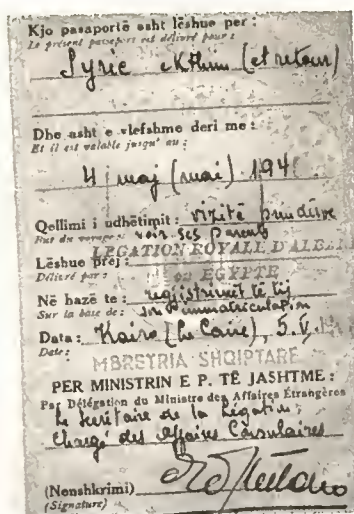 Kjo pasaportë asht lëshue per :
Le présent passeport est délivré pour :
Syrie e kthim (et retour)
Dhe asht e vlefshme deri me :
Et il est valable jusqu' au :
4 maj (mai) 194
Qellimi i udhëtimit : vizitë prindërve
But du voyage : voir ses parents
LEGATION ROYALE D'ALBA
Lëshue prej :
Délivré par :
en EGYPTE
Në bazë te : regjistrimit të tij
Sur la base de : son immatriculation
Data : Kairo (Le Caire), 5.V.
Date :
MBRETRIA SHQIPTARE
PER MINISTRIN E P. TË JASHTME :
Par Délégation du Ministre des Affaires Étrangères
Le Secrétaire de la Légation,
Chargé des Affaires Consulaires
(Nënshkrimi)
(Signature)